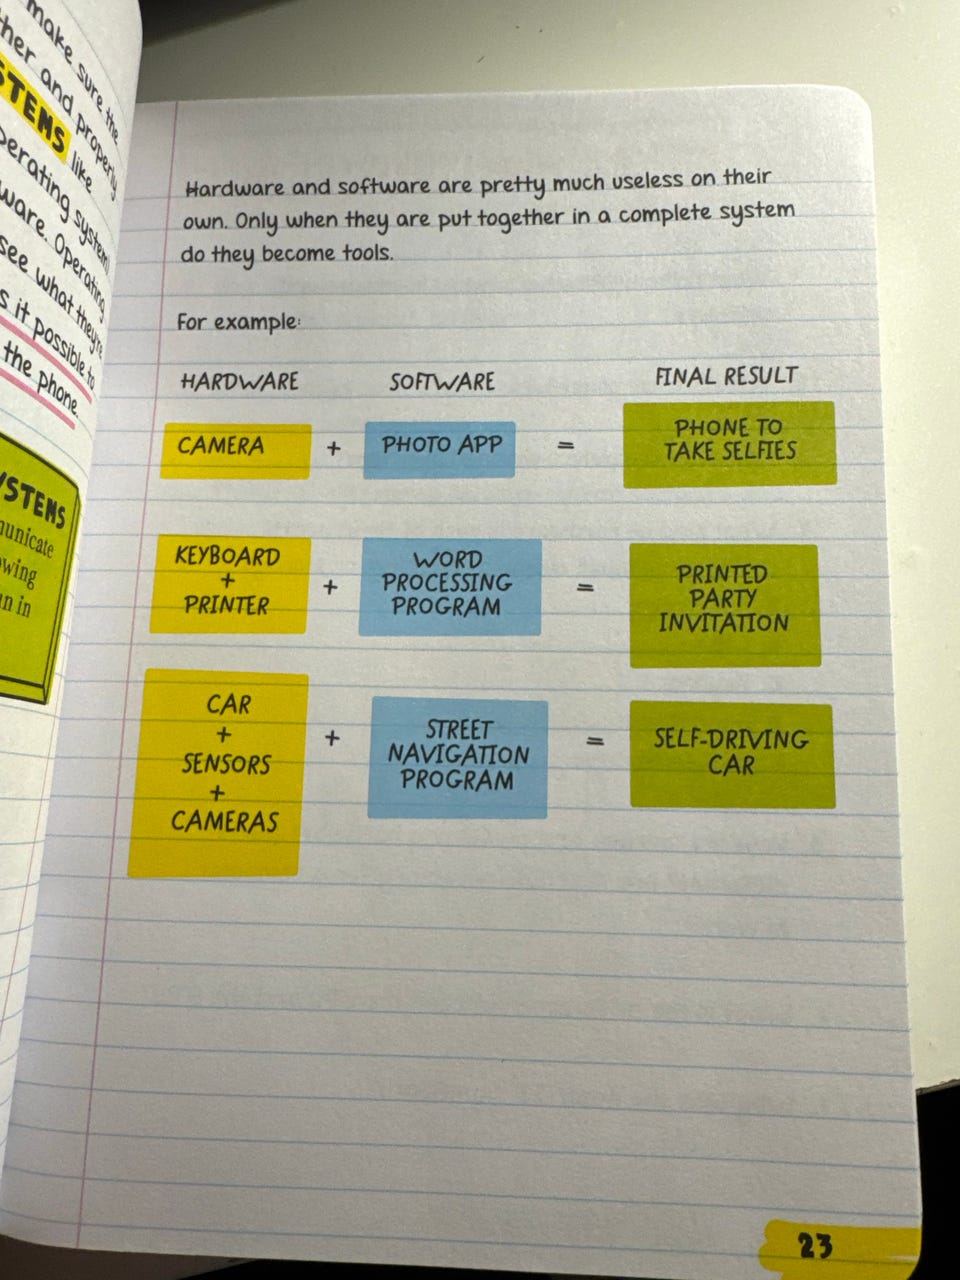 make sure the
ther and properly
STEMS like
perating system
ware. Operating
see what they're
s it possible to
the phone.
YSTEMS
municate
wing
n in
Hardware and software are pretty much useless on their
own. Only when they are put together in a complete system
do they become tools.
For example:
HARDWARE SOFTWARE FINAL RESULT
CAMERA + PHOTO APP = PHONE TO
TAKE SELFIES
KEYBOARD
+
PRINTER
+
WORD
PROCESSING
PROGRAM
=
PRINTED
PARTY
INVITATION
CAR
+
SENSORS
+
CAMERAS
+
STREET
NAVIGATION
PROGRAM
=
SELF-DRIVING
CAR
23